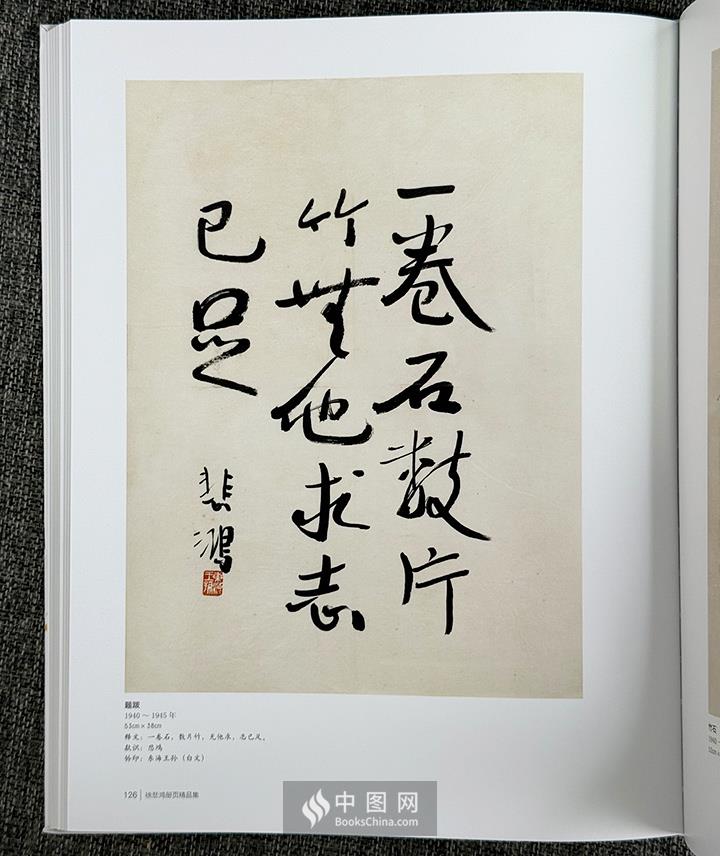 一卷石數片
竹無他求志
已足
悲鴻
題跋
1940～1945年
53cm×38cm
释文：一卷石，数片竹，无他求，志已足。
款识：悲鸿
钤印：东海王孙（白文）
126 徐悲鸿册页精品集
中图网
BooksChina.com